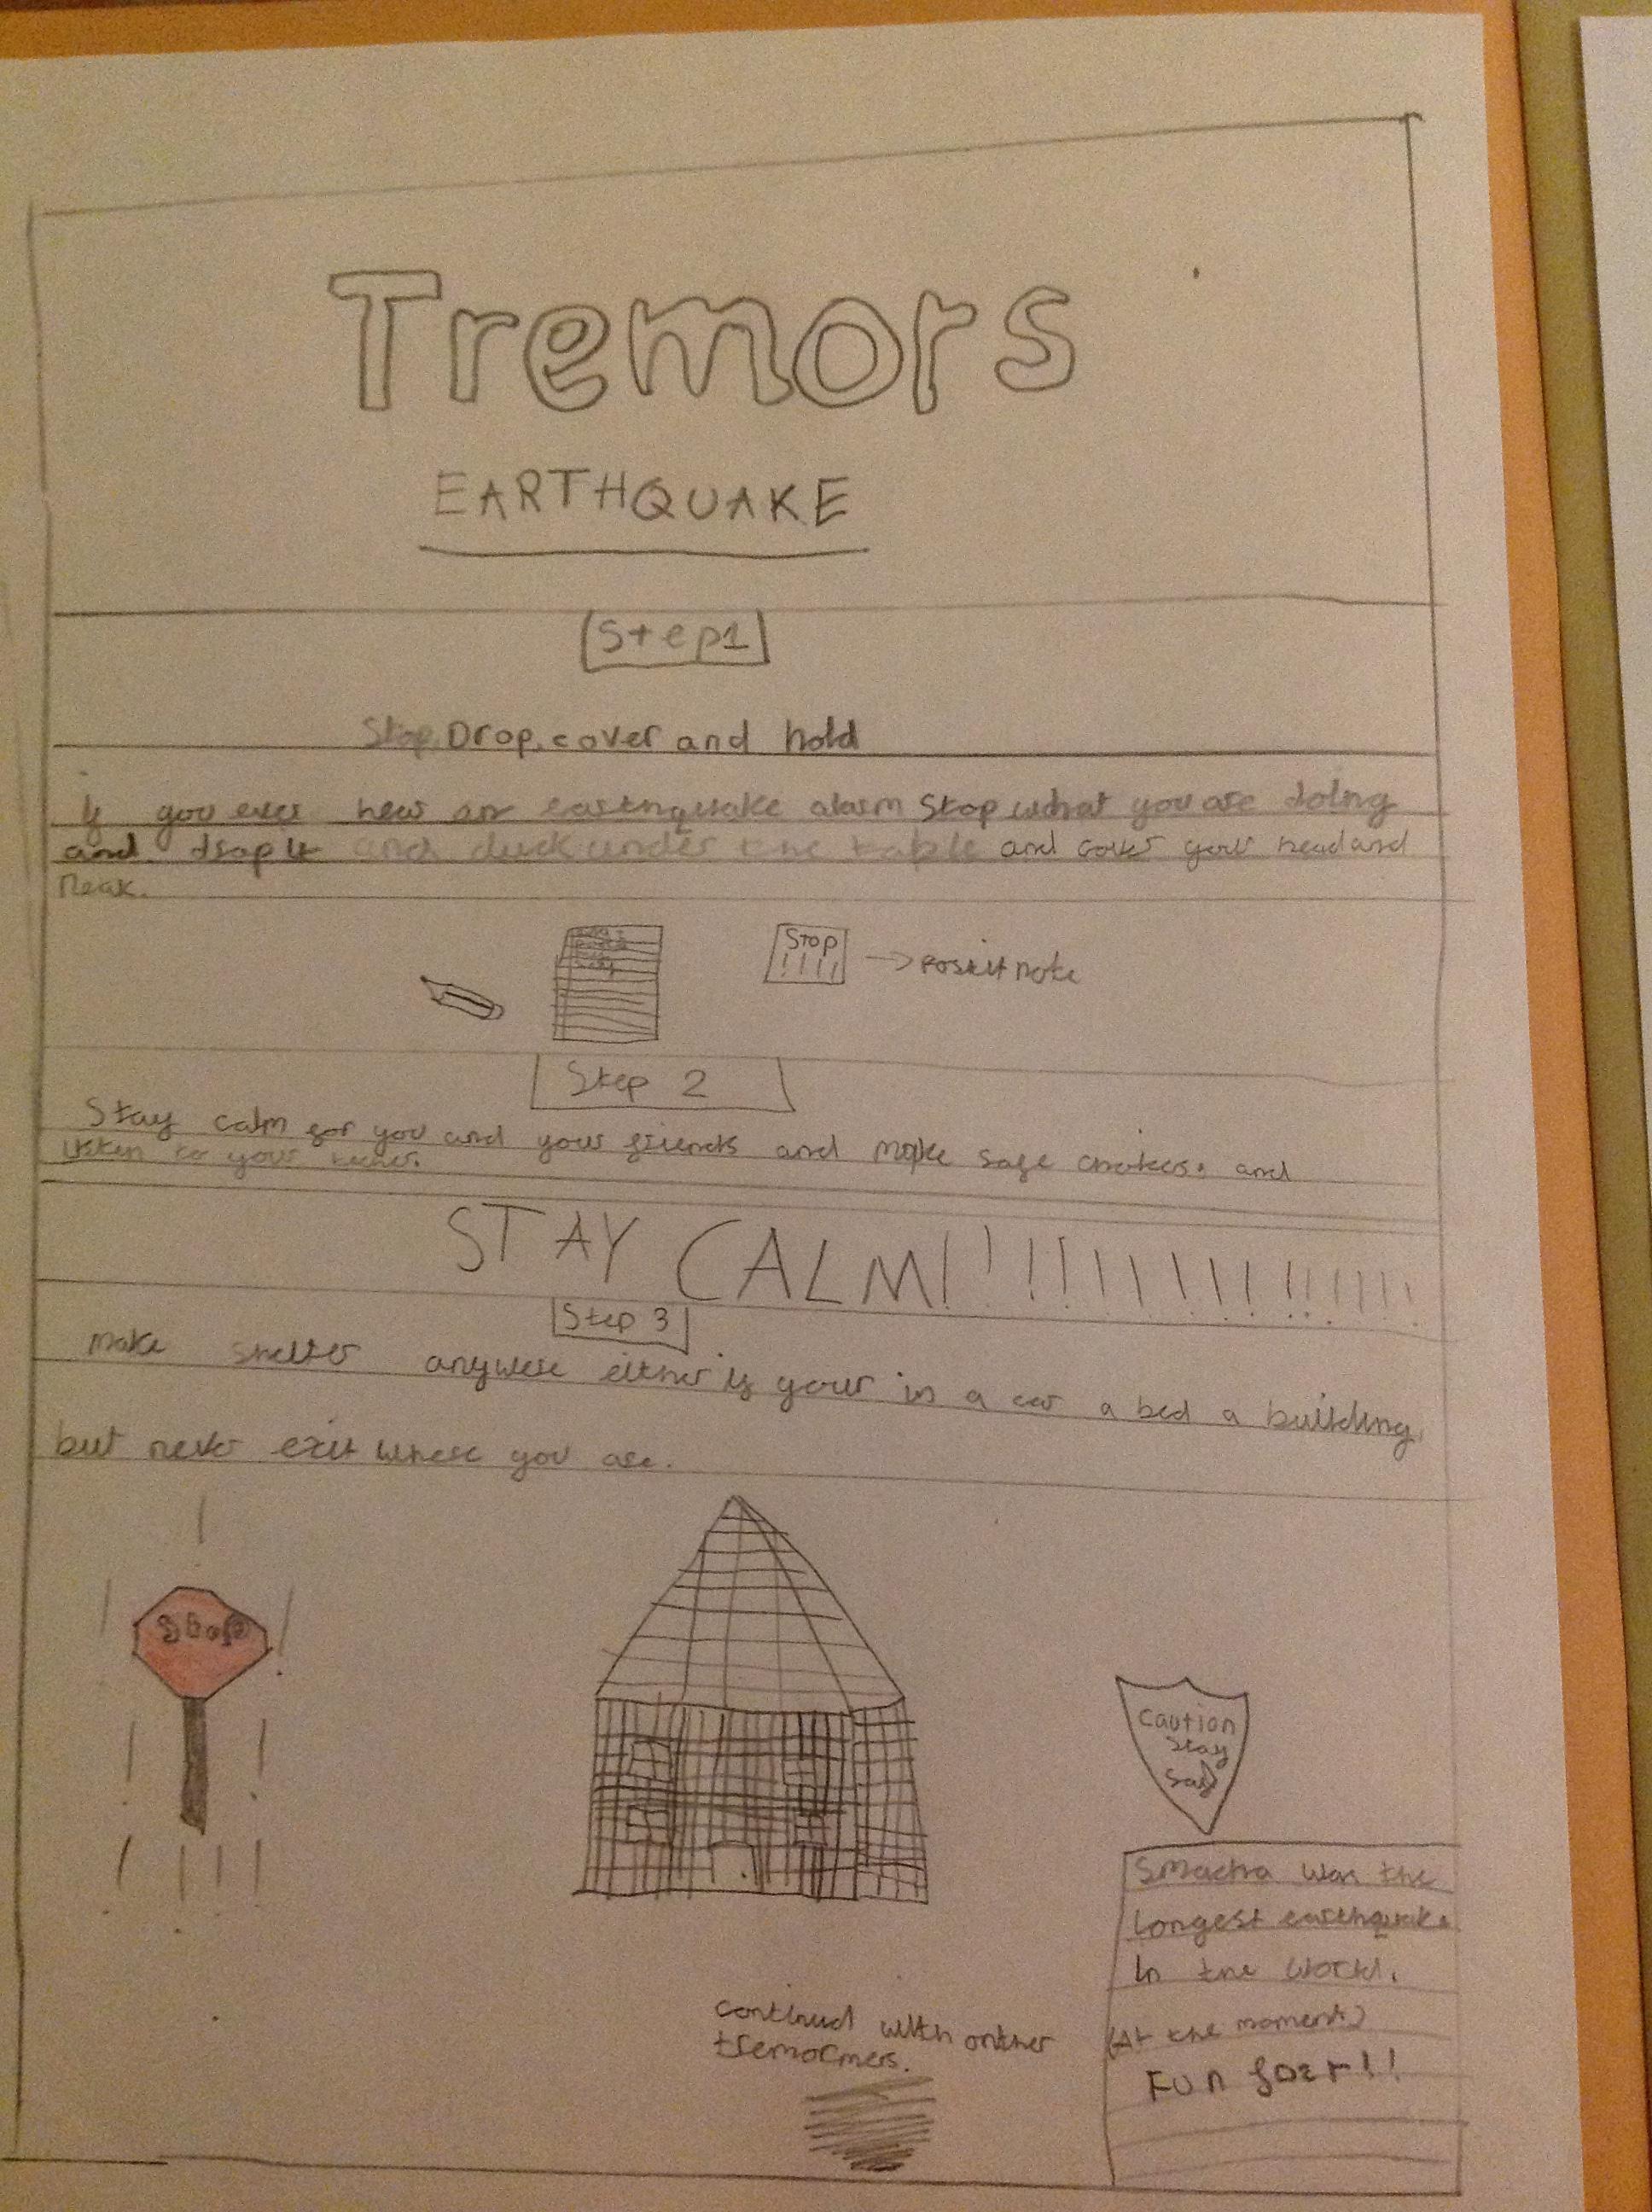 Tremors
EARTHQUAKE
Step1
Stop, Drop, cover and hold
if you ever hear an earthquake alarm Stop what you are doing
and drop it and duck under the table and cover your head and
neak.
Stop
!!!!
→ Posit note
Step 2
Stay calm for you and your friends and make safe choices. and
listen to your techer.
STAY CALM!!!!!!!!!!!!!!!!!!
Step 3
make shelter anywere either if your in a car a bed a building,
but never exit where you are.
Stop
Caution
Stay
Safe
Smactra was the
longest earthquake
in the world.
(At the moment)
Fun fact!!
continud with onther
tremormers.